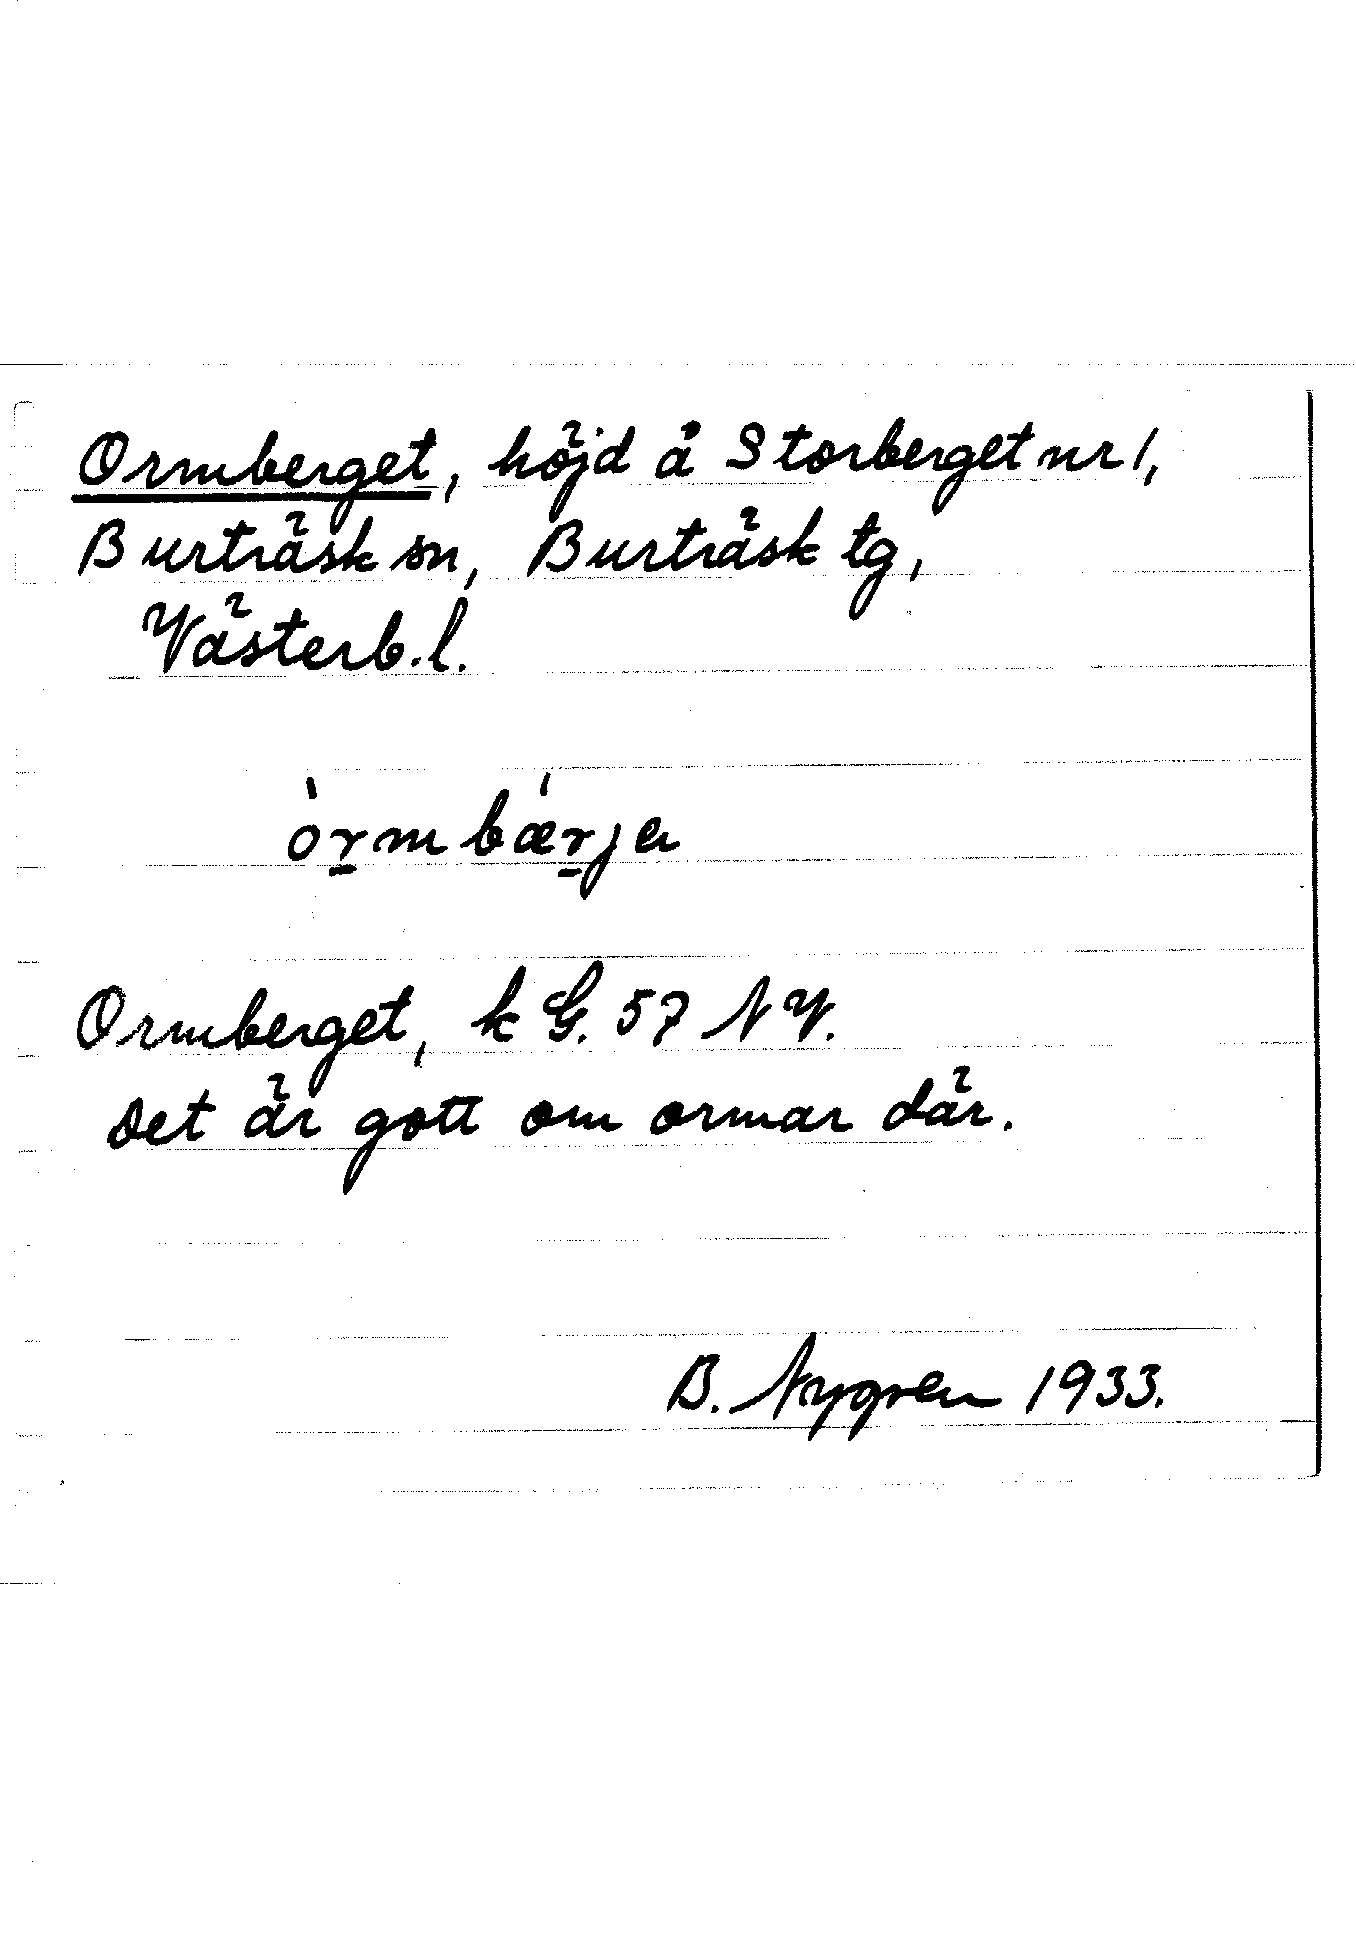 Ormberget, höjd å Storberget nr 1,
Burträsk sn, Burträsk tg,
Västerb.l.
òrmbǽrjа
Ormberget, k G. 57 NV.
Det är gott om ormar där.
B. Nygren 1933.